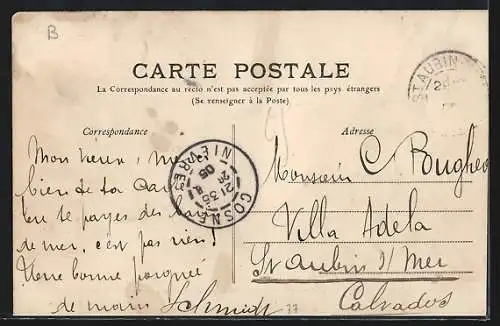 B
CARTE POSTALE
La Correspondance au recto n'est pas acceptée par tous les pays étrangers
(Se renseigner à la Poste)
Correspondance
Adresse
Mon vieux, merci
bien de ta carte
tu te payes des bains
de mer, c'est pas rien!
Une bonne poignée
de main Schmidt
77
COSNE
NIÈVRE
ST AUBIN
Monsieur C.
Villa Adela
St Aubin s/ Mer
Calvados